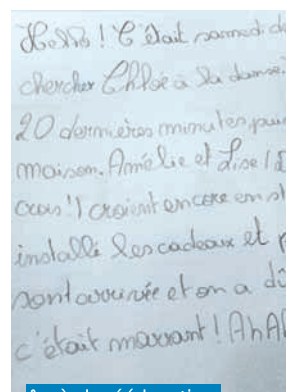 Hello ! C'était samedi
chercher Chloé à la danse.
20 dernières minutes, puis
maison. Amélie et Lise
encore en
installé les cadeaux et
sont arrivée et on a dû
c'était marrant ! AhA